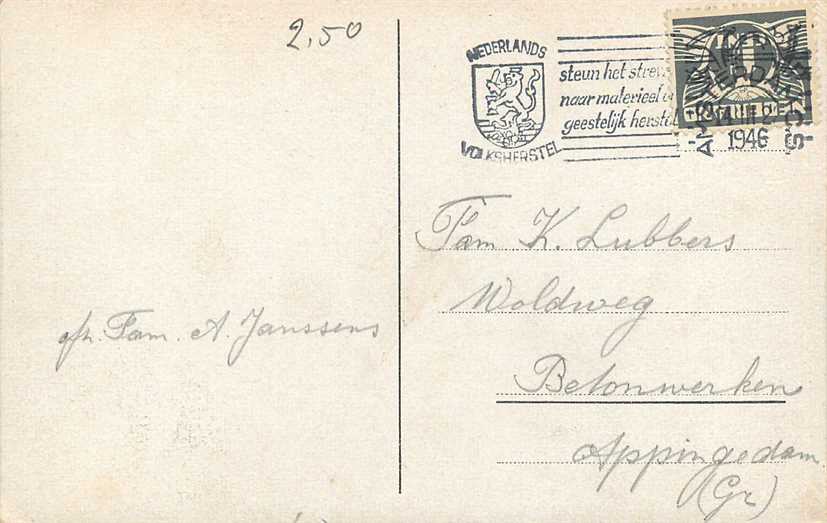 2,50
NEDERLANDS
VOLKSHERSTEL
steun het
naar materieel
geestelijk herstel
AMSTERDAM
1946
Fam K. Lubbers
Woldweg
Betonwerken
Appingedam
(Gr)
afz. Fam. A. Janssens